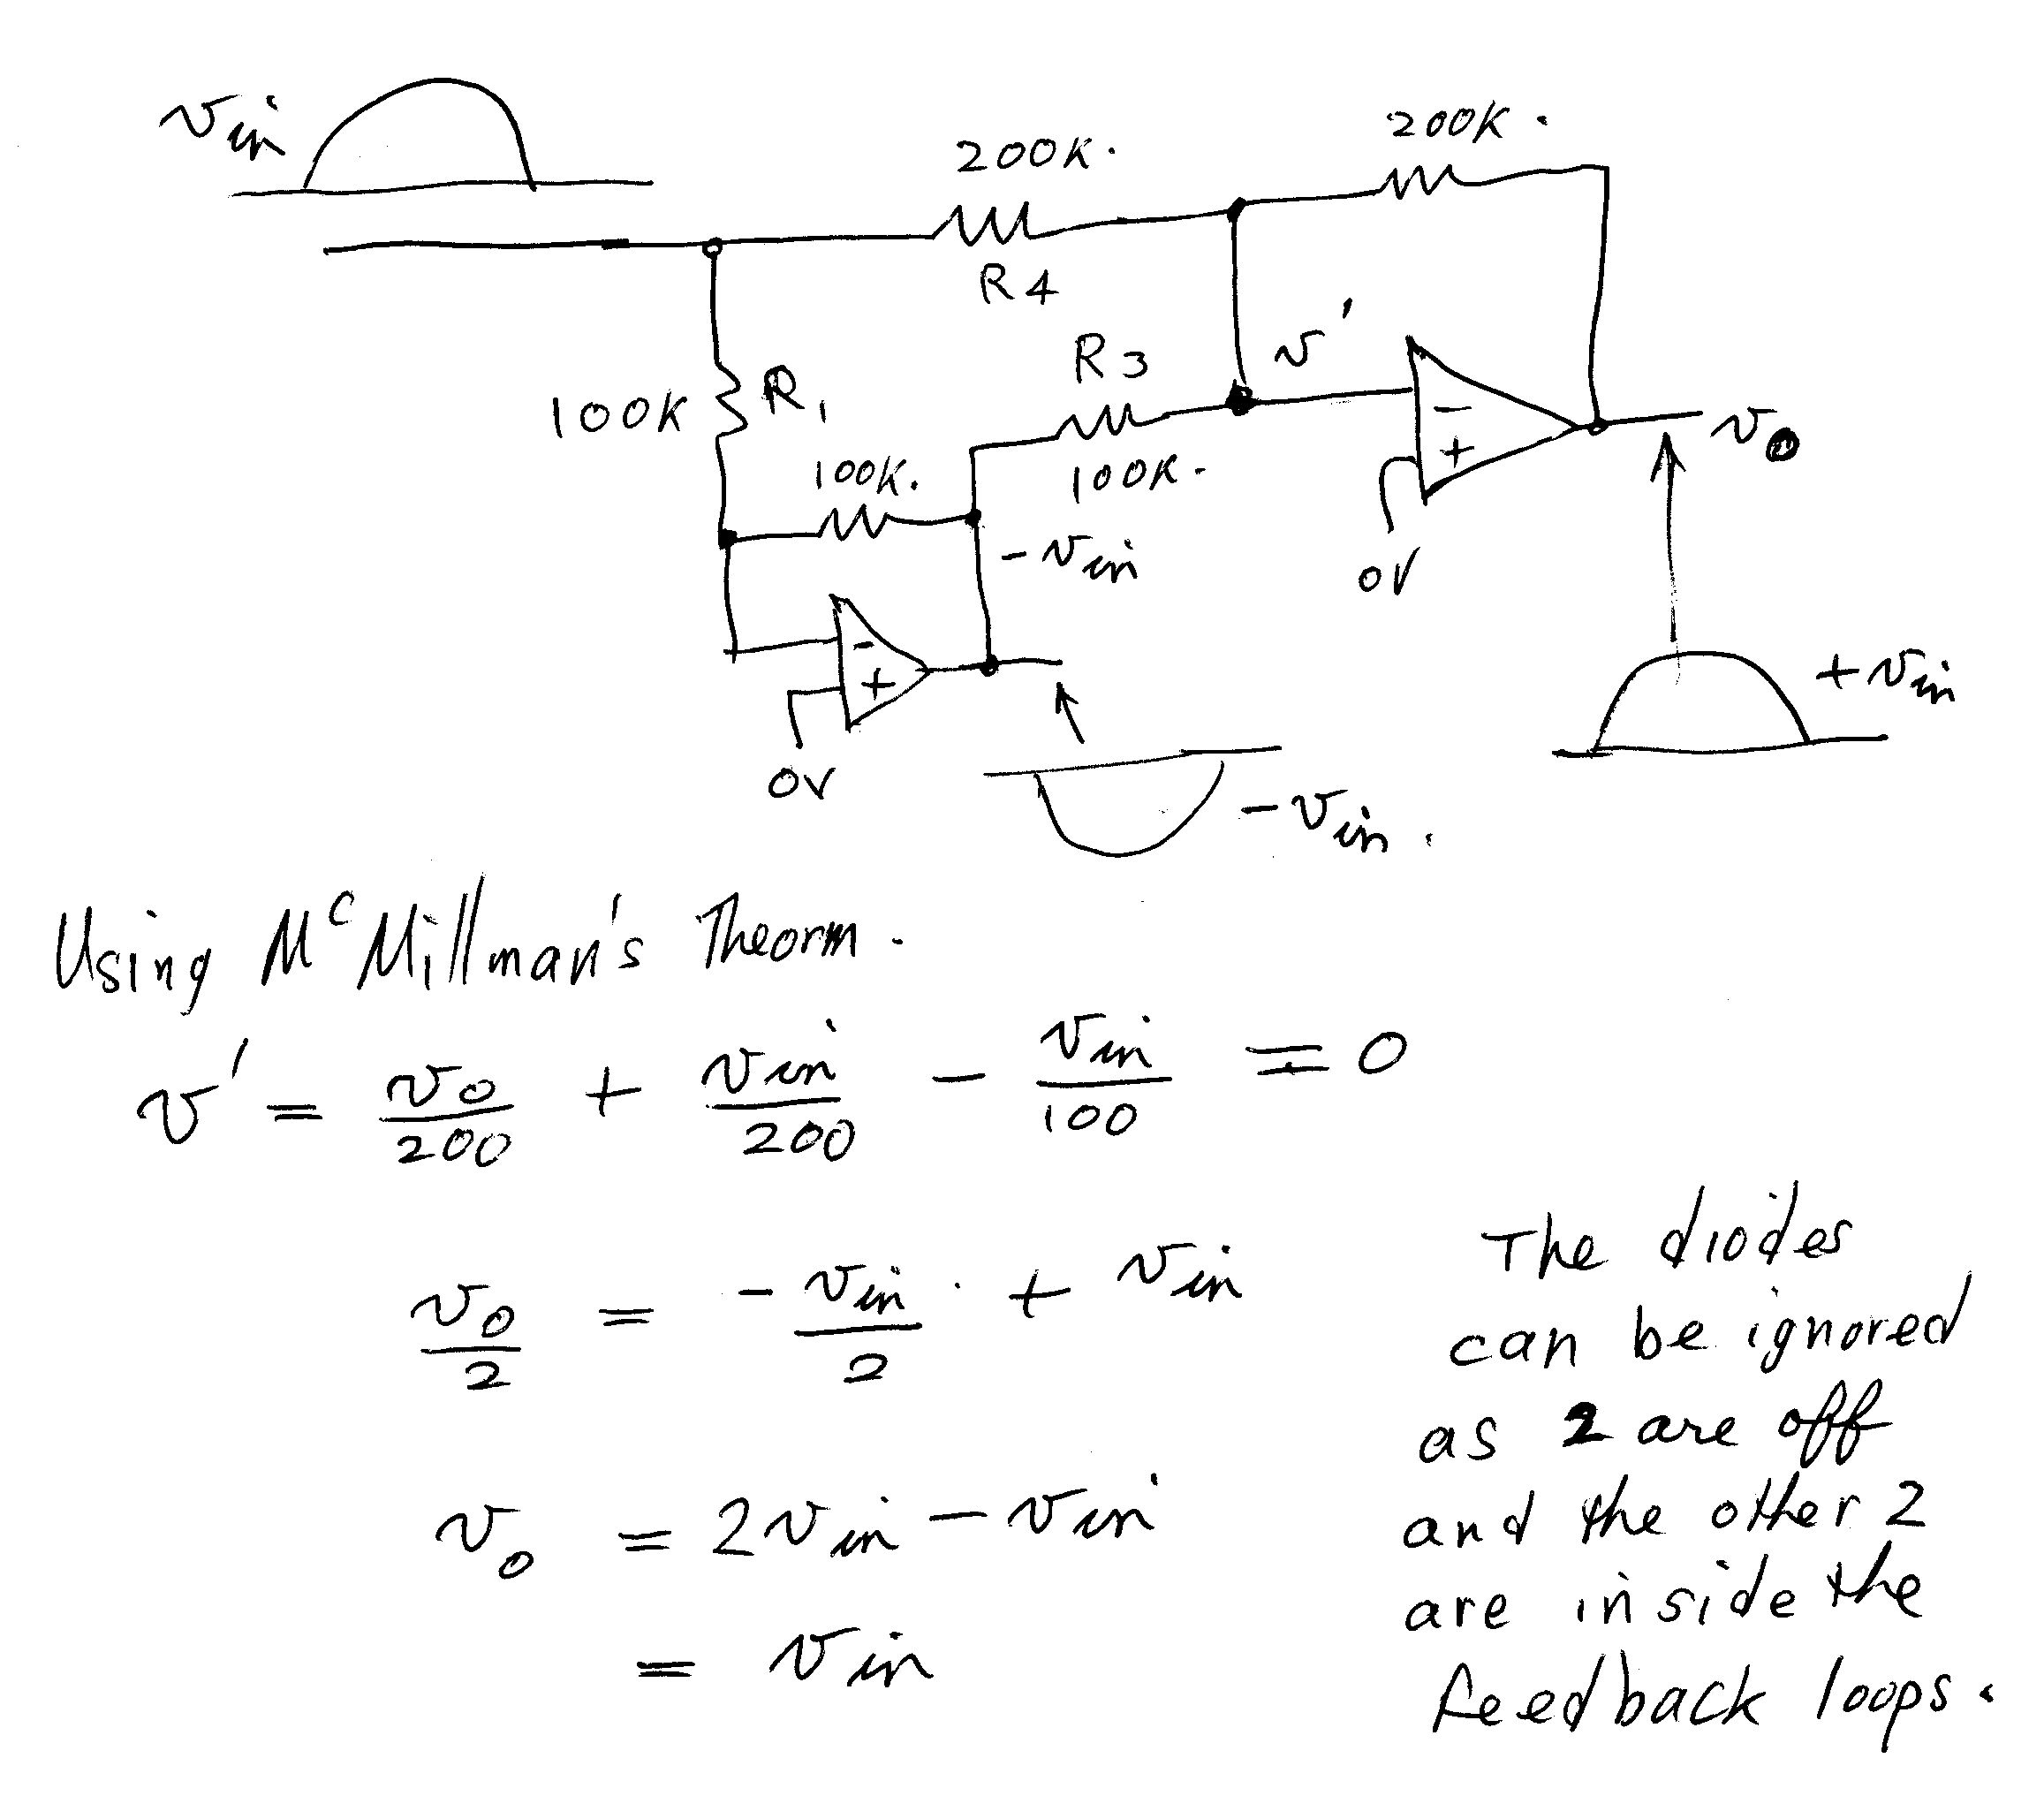 vin
200K.
200K.
R4
R3
v'
100K
R1
100K.
100K.
-
+
v0
-vin
0V
-
+
+vin
0V
-vin.
Using McMillman's Theorm.
v' = v0/200 + vin/200 - vin/100 = 0
v0/2 = -vin/2 + vin
v0 = 2vin - vin
= vin
The diodes
can be ignored
as 2 are off
and the other 2
are inside the
feedback loops.